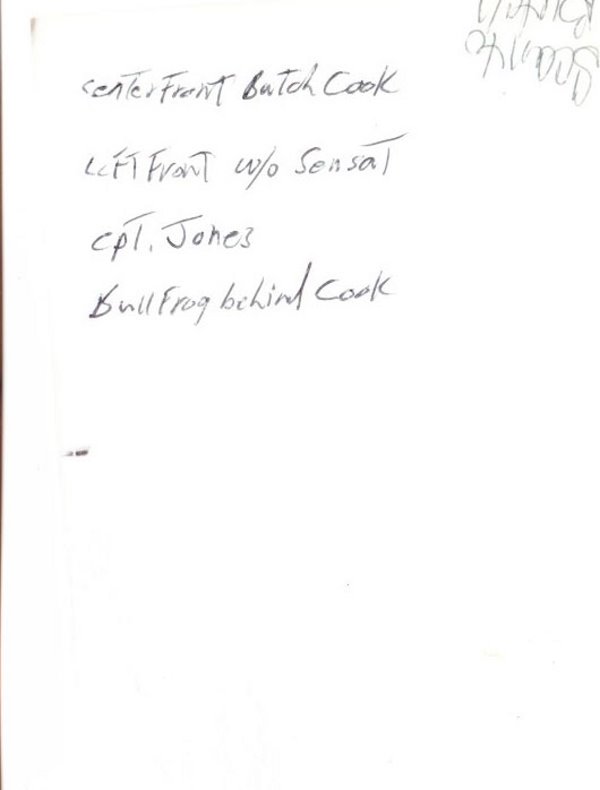 center Front Butch Cook
Left Front w/o Sensat
cpt. Jones
Bull Frog behind Cook